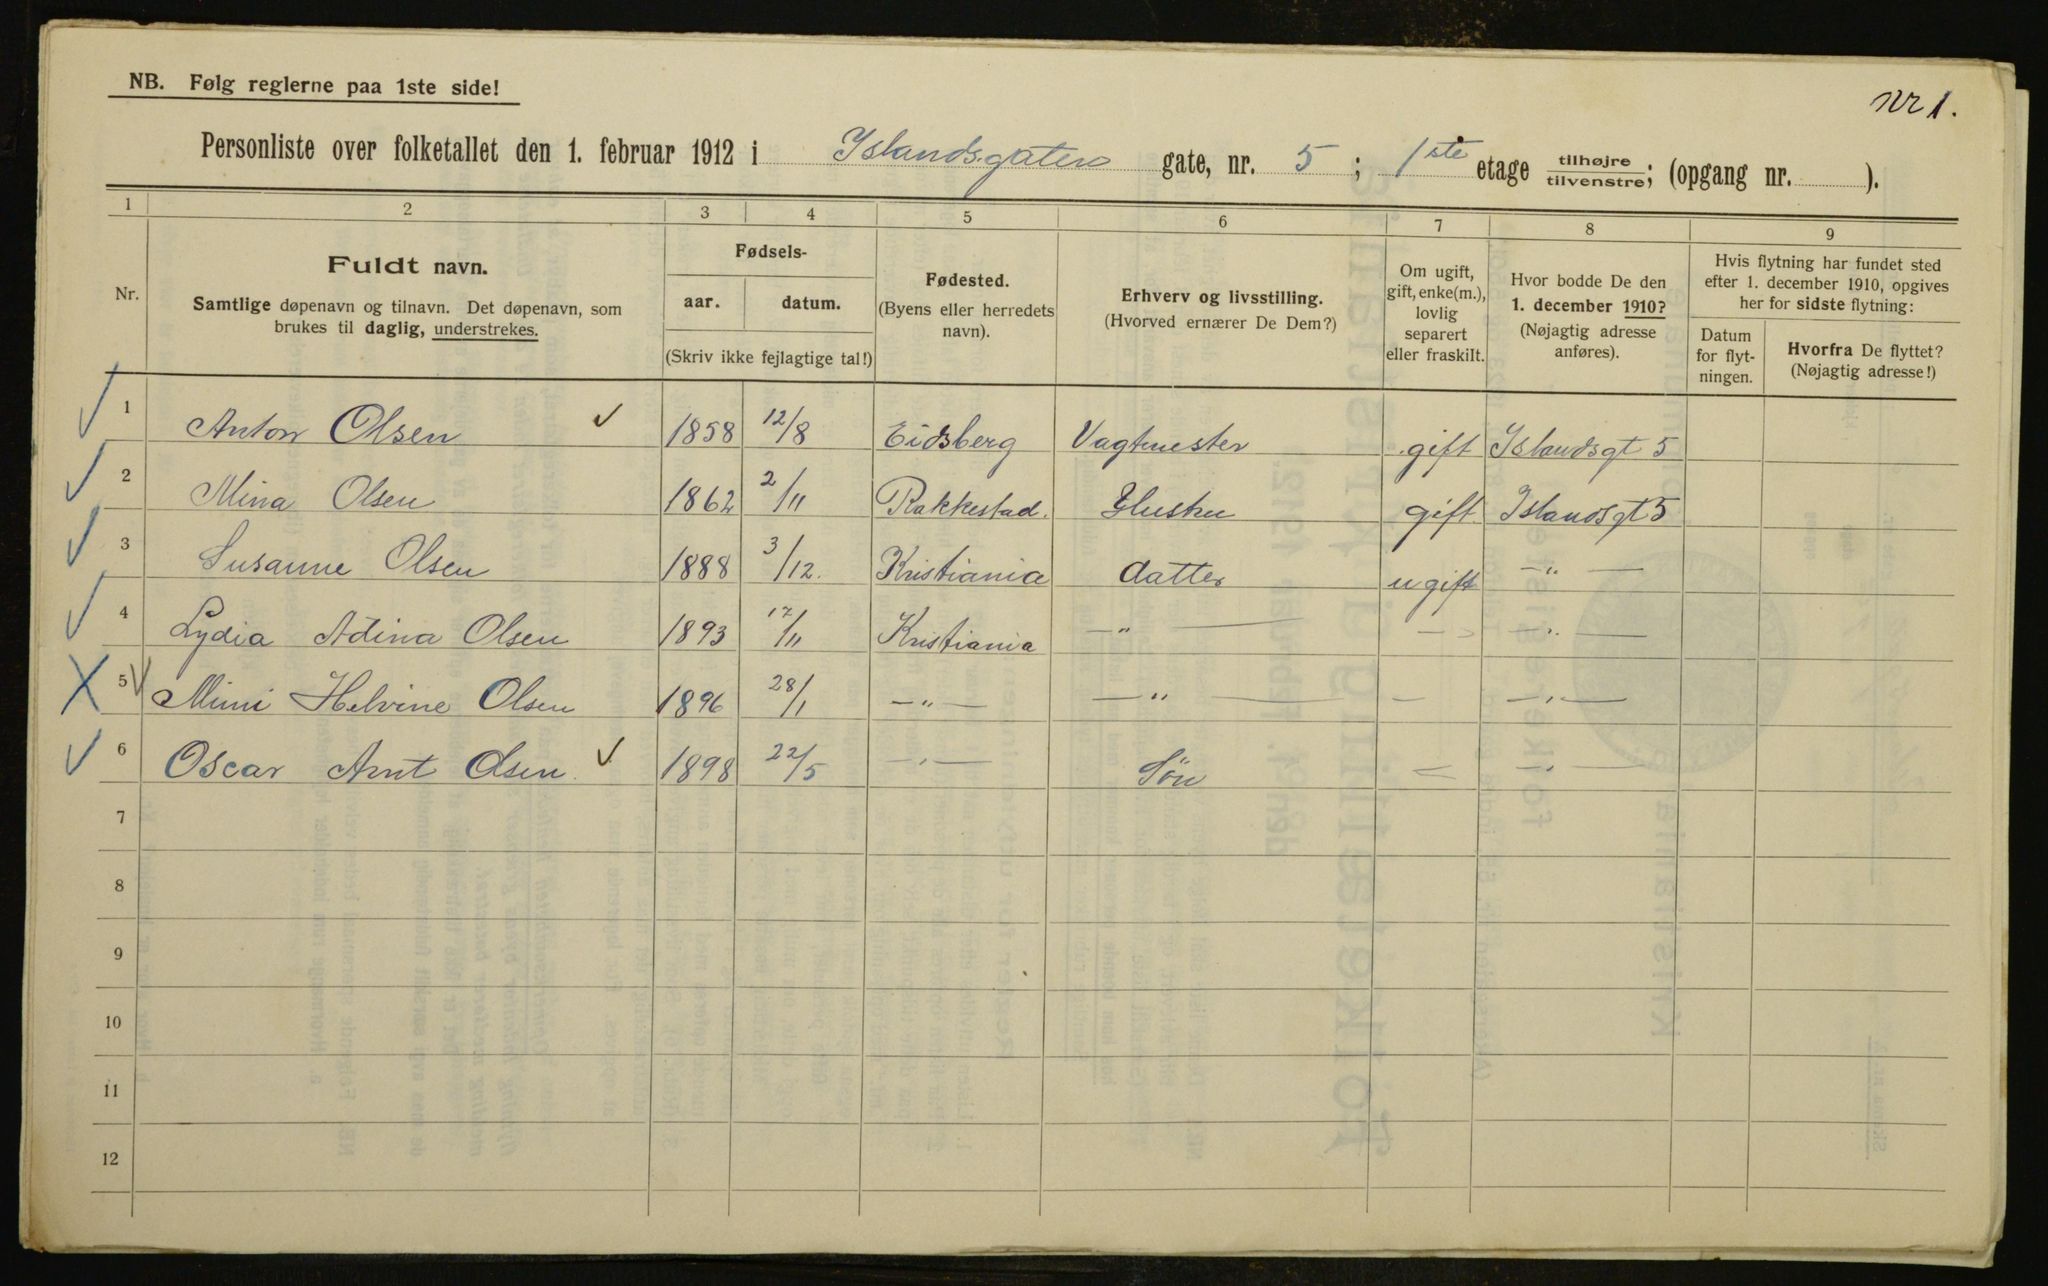 NB. Følg reglerne paa 1ste side!
Nr 1.
Personliste over folketallet den 1. februar 1912 i Islandsgaten gate, nr. 5 ; 1ste etage tilhøjre tilvenstre; (opgang nr. ).
1 2 3 4 5 6 7 8 9
Nr.
Fuldt navn.
Samtlige døpenavn og tilnavn. Det døpenavn, som
brukes til daglig, understrekes.
Fødsels-
aar. datum.
(Skriv ikke fejlagtige tal!)
Fødested.
(Byens eller herredets
navn).
Erhverv og livsstilling.
(Hvorved ernærer De Dem?)
Om ugift,
gift, enke(m.),
lovlig
separert
eller fraskilt.
Hvor bodde De den
1. december 1910?
(Nøjagtig adresse
anføres).
Hvis flytning har fundet sted
efter 1. december 1910, opgives
her for sidste flytning:
Datum
for flyt-
ningen.
Hvorfra De flyttet?
(Nøjagtig adresse!)
1 Anton Olsen 1858 12/8 Eidsberg Vagtmester gift Islandsgt 5
2 Mina Olsen 1862 2/11 Rakkestad. Hustru gift Islandsgt 5
3 Susanne Olsen 1888 3/12. Kristiania datter ugift — " —
4 Lydia Adina Olsen 1893 17/11 Kristiania — " — — — " —
5 Mimi Helvine Olsen 1896 28/1 — " — — " — — — " —
6 Oscar Arnt Olsen 1898 22/5 — " — Søn — — " —
7
8
9
10
11
12